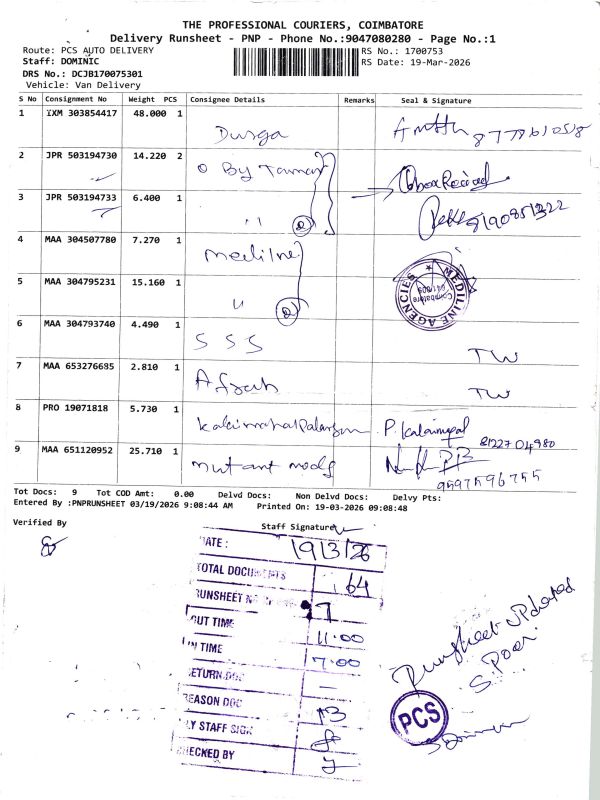 THE PROFESSIONAL COURIERS, COIMBATORE
Delivery Runsheet - PNP - Phone No.:9047080280 - Page No.:1
Route: PCS AUTO DELIVERY RS No.: 1700753
Staff: DOMINIC RS Date: 19-Mar-2026
DRS No.: DCJB170075301
Vehicle: Van Delivery
S No Consignment No Weight PCS Consignee Details Remarks Seal & Signature
1 IXM 303854417 48.000 1 Durga
2 JPR 503194730 14.220 2 By
3 JPR 503194733 6.400 1 " (2)
4 MAA 304507780 7.270 1 mediline
5 MAA 304795231 15.160 1 " (2) MEDILINE AGENCIES Coimbatore
6 MAA 304793740 4.490 1 SSS TW
7 MAA 653276685 2.810 1 Afrah TW
8 PRO 19071818 5.730 1 P. Kalaimagal
9 MAA 651120952 25.710 1 mutant mods 9597596755
Tot Docs: 9 Tot COD Amt: 0.00 Delvd Docs: Non Delvd Docs: Delvy Pts:
Entered By :PNPRUNSHEET 03/19/2026 9:08:44 AM Printed On: 19-03-2026 09:08:48
Verified By Staff Signature
DATE : 19/3/26
TOTAL DOCUMENTS 64
RUNSHEET
OUT TIME 11.00
IN TIME 7.00
RETURN DOC –
REASON DOC 13
LY STAFF SIGN
CHECKED BY
Runsheet updated
S. Poori
PCS